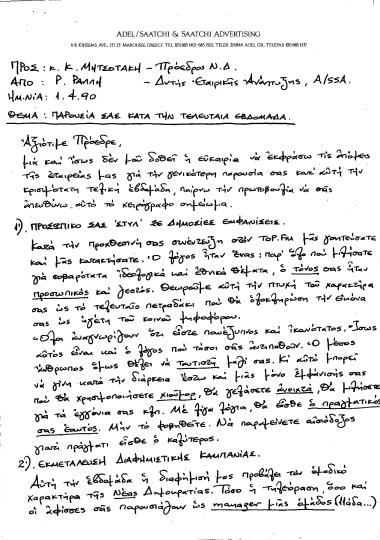 ADEL/SAATCHI & SAATCHI ADVERTISING
ΠΡΟΣ: κ. Κ. ΜΗΤΣΟΤΑΚΗ - Πρόεδρον Ν.Δ.
ΑΠΟ: Ρ. ΡΑΛΛΗ - Δντής Εταιρικής Ανάπτυξης, A/SSA.
ΗΜ.ΝΙΑ: 1.4.90
ΘΕΜΑ: ΠΑΡΟΥΣΙΑ ΣΑΣ ΚΑΤΑ ΤΗΝ ΤΕΛΕΥΤΑΙΑ ΕΒΔΟΜΑΔΑ.
Αξιότιμε Πρόεδρε,
μιά καί ίσως δέν μού δοθεί ή ευκαιρία νά εκφράσω τίς απόψεις
τής εταιρείας μας γιά τήν γενικότερη παρουσία σας κατ' αυτή τήν
κρισιμότατη τελική εβδομάδα, παίρνω τήν πρωτοβουλία νά σάς
απευθύνω αυτό τό χειρόγραφο σημείωμα.
1) ΠΡΟΣΩΠΙΚΟ ΣΑΣ 'ΣΤΥΛ' ΣΕ ΔΗΜΟΣΙΕΣ ΕΜΦΑΝΙΣΕΙΣ.
Κατά τήν προχθεσινή σας συνέντευξη στόν TOP.FM μάς γοητεύσατε
καί μάς κατακτήσατε. Ο λόγος ήταν ένας: παρ' όλο πού μιλήσατε
γιά σοβαρότατα ιδεολογικά καί εθνικά θέματα, ο τόνος σας ήταν
προσωπικός καί ζεστός. Θεωρούμε αυτή τήν πτυχή τού χαρακτήρα
σας ώς τό τελευταίο πετραδάκι πού θά ολοκληρώση τήν εικόνα
σας ώς ηγέτη τού κοινού ψηφοφόρου.
Όλοι αναγνωρίζουν ότι είστε πανέξυπνος καί ικανότατος. Ίσως
αυτός είναι καί ο λόγος πού τόσοι σάς αντιπαθούν. Ο μέσος
άνθρωπος όμως θέλει νά ταυτιστή μαζί σας. Κι αυτό μπορεί
νά γίνη κατά τήν διάρκεια έστω καί μιάς μόνο εμφάνισής σας
πού θά χρησιμοποιήσετε χιούμορ, θά γελάσετε ανοιχτά, θά μιλήσετε
γιά τά εγγόνια σας κλπ. Μέ λίγα λόγια, θά είσθε ο πραγματικός
σας εαυτός. Μήν τό φοβηθείτε. Νά παραμείνετε αισιόδοξος
γιατί πράγματι είσθε ο καλύτερος.
2) ΕΚΜΕΤΑΛΕΥΣΗ ΔΙΑΦΗΜΙΣΤΙΚΗΣ ΚΑΜΠΑΝΙΑΣ.
Αυτή τήν εβδομάδα ή διαφήμισή μας προβάλει τόν ομαδικό
χαρακτήρα τής Νέας Δημοκρατίας. Τόσο ή τηλεόραση, όσο καί
οι αφίσσες σάς παρουσιάζουν ώς manager μιάς ομάδος